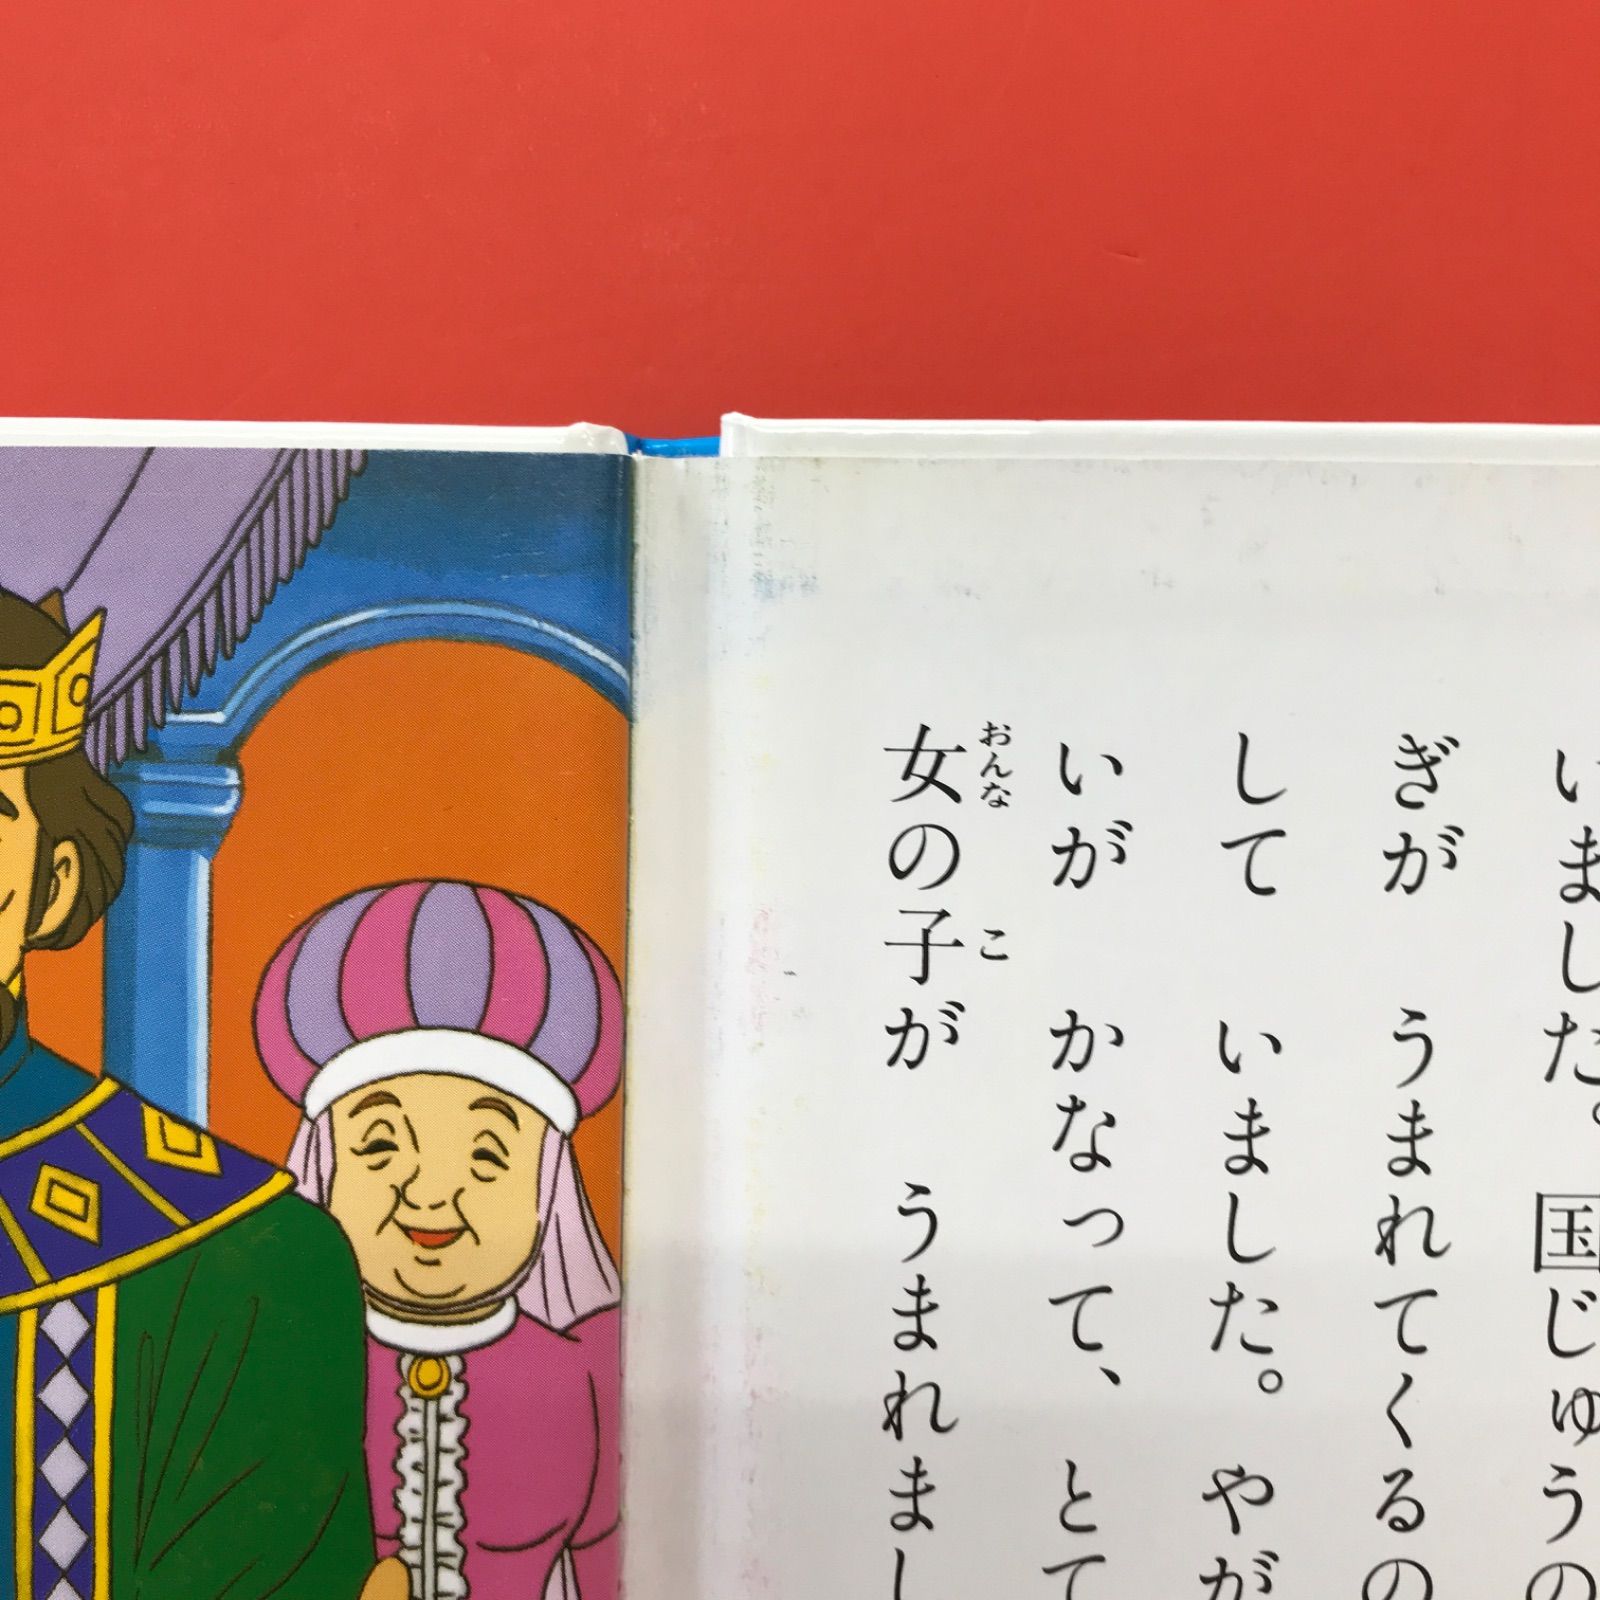 いました。国じゅうの
ぎが うまれてくるの
して いました。やが
いが かなって、とて
女の子が うまれまし
おんな
こ